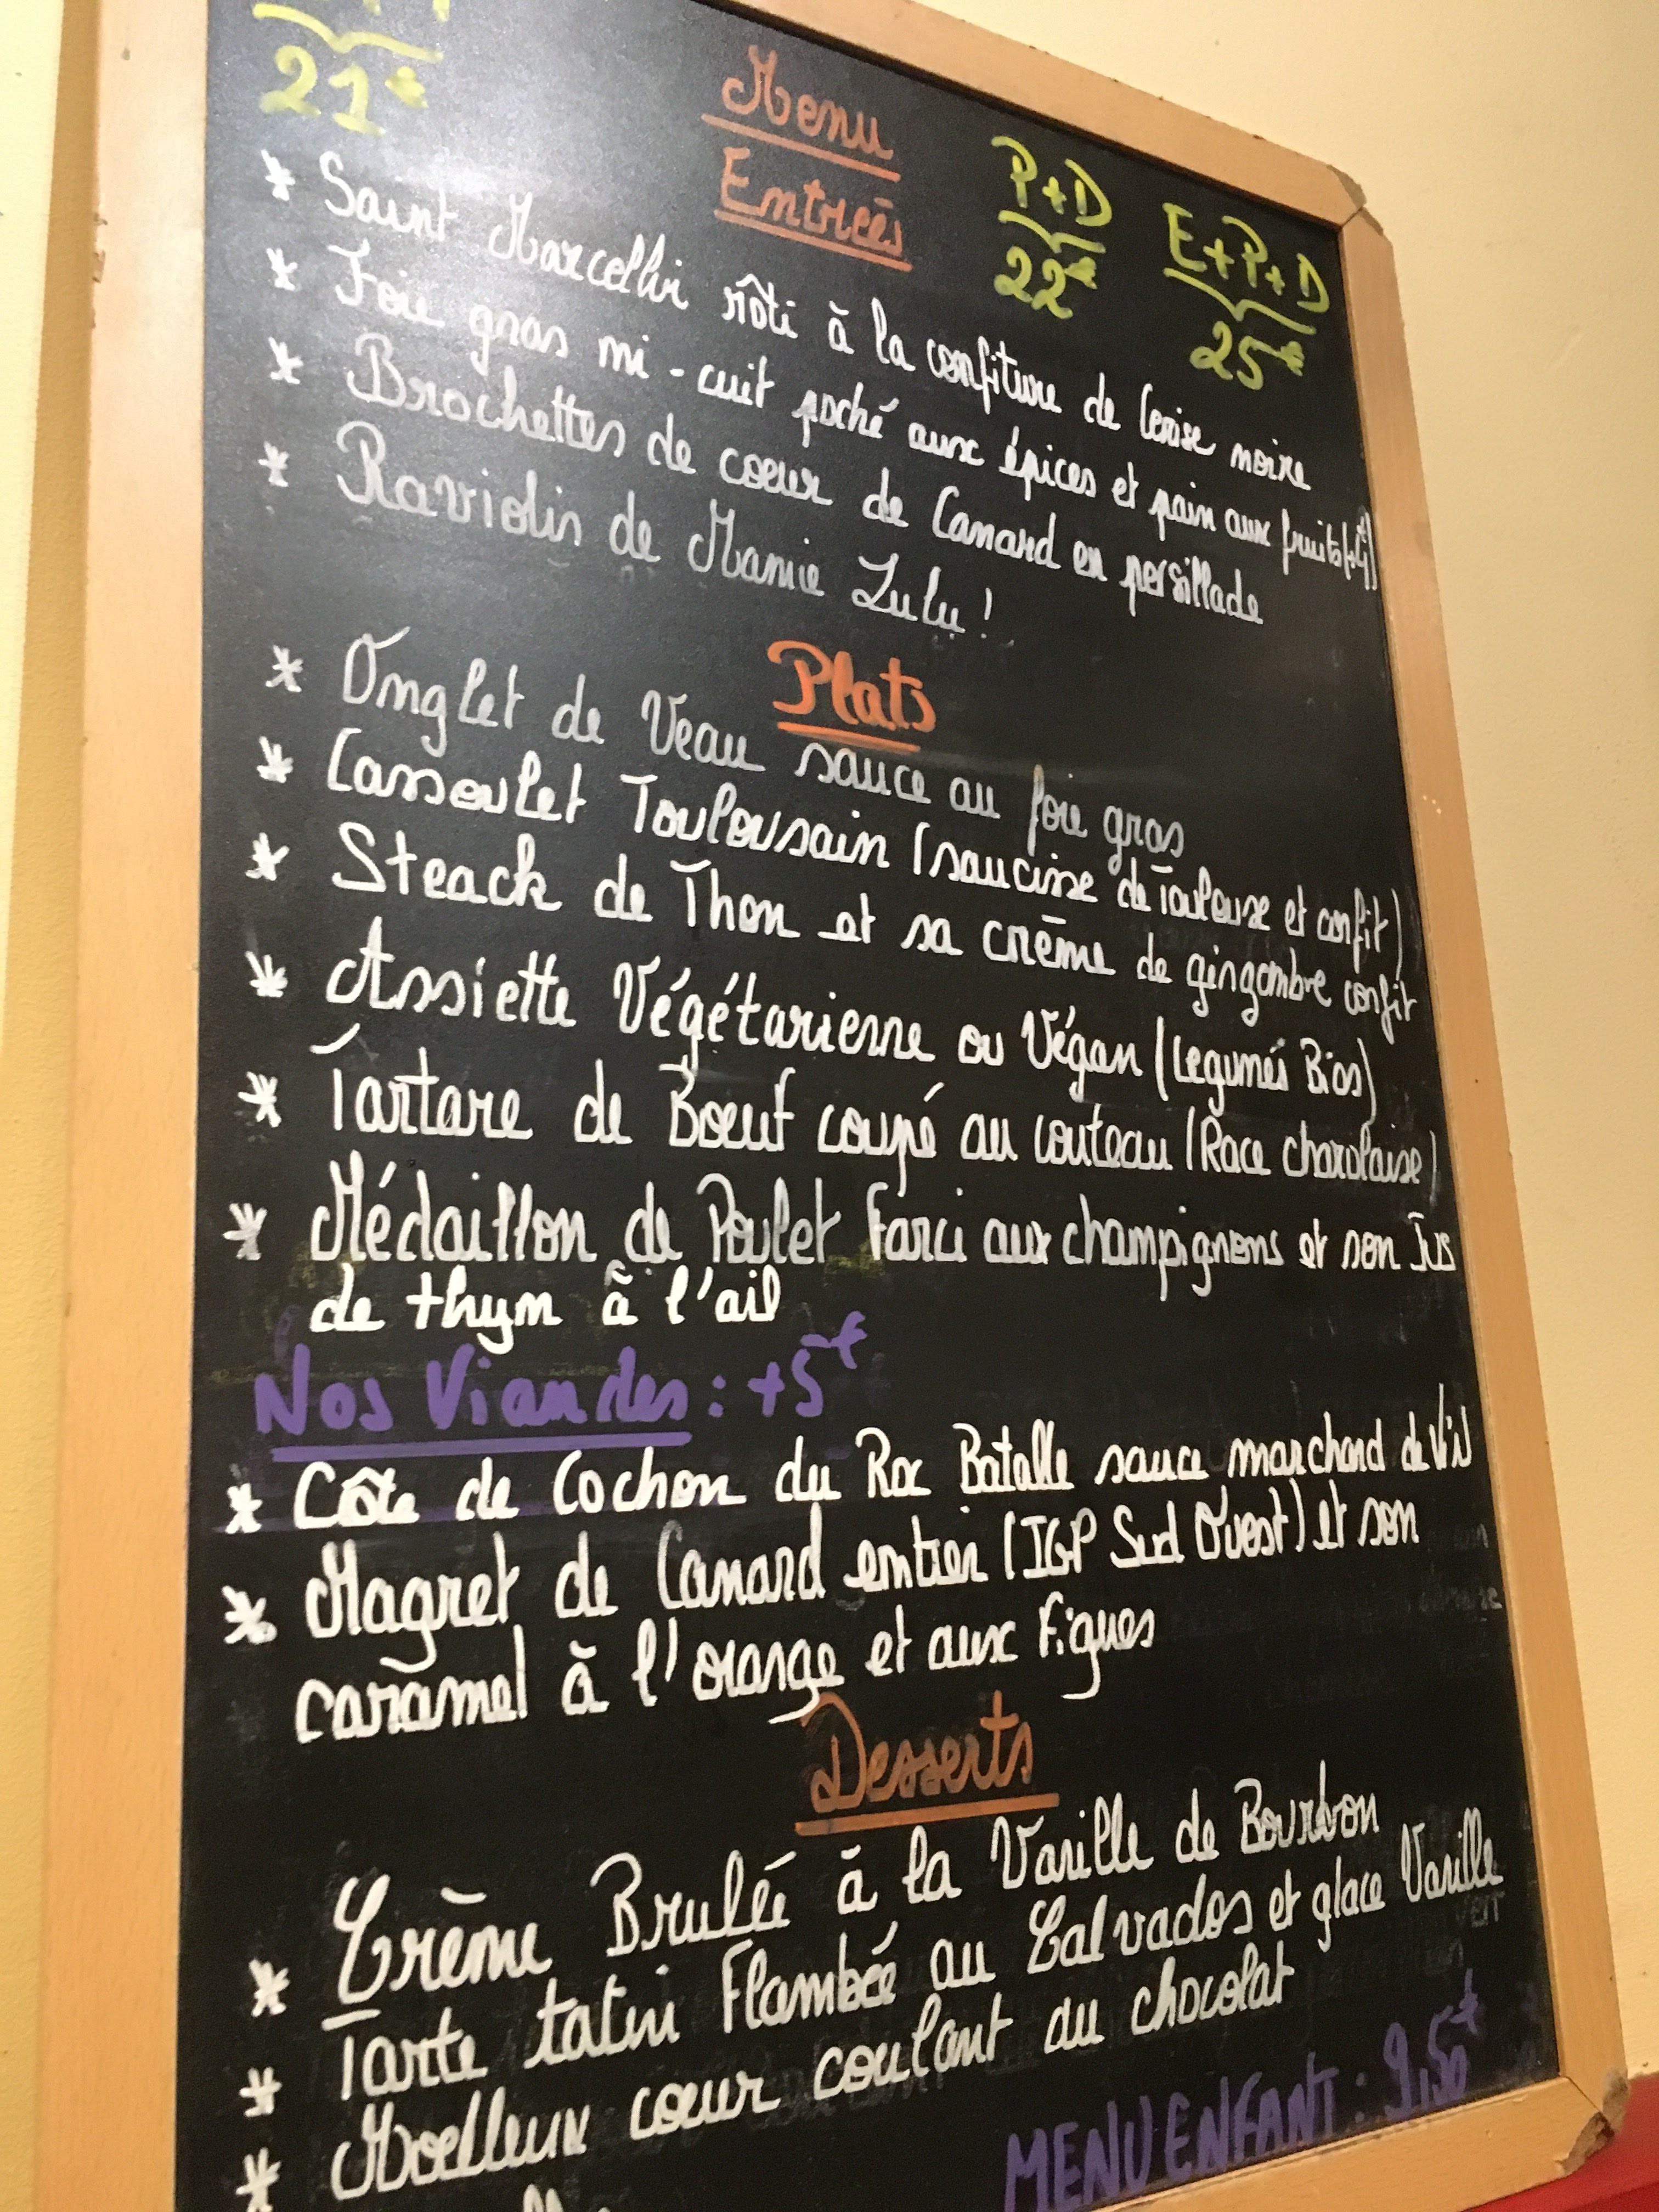 21€
Menu
Entrées
P+D
22€
E+P+D
25€
* Saint Marcellin rôti à la confiture de Cerise noire
* Foie gras mi-cuit poché aux épices et pain aux fruits (+4€)
* Brochettes de coeur de Canard en persillade
* Raviolis de Mamie Lulu!
Plats
* Onglet de Veau sauce au foie gras
* Cassoulet Toulousain (saucisse de Toulouse et confit)
* Steack de Thon et sa crème de gingembre confit
* Assiette Végétarienne ou Végan (Legumés Bios)
* Tartare de Boeuf coupé au couteau (Race charolaise)
* Médaillon de Poulet Farci aux champignons et son Jus
de thym à l'ail
Nos Viandes : +5€
* Côte de Cochon du Roc Batalle sauce marchand de Vin
* Magret de Canard entier (IGP Sud Ouest) et son
caramel à l'orange et aux Figues
Desserts
* Crème Brulée à la Vanille de Bourbon
* Tarte tatin Flambée au Calvados et glace Vanille
* Moelleux cœur coulant au chocolat
MENU ENFANT : 9,50€